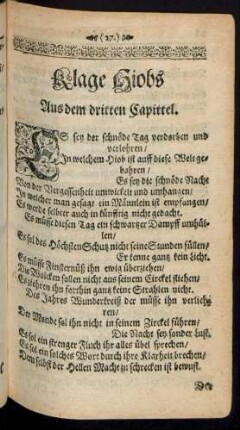 ( 27. )
Klage Hiobs
Aus dem dritten Capittel.
ES sey der schnöde Tag verdorben und
verlohren/
In welchem Hiob ist auff diese Welt ge-
bohren/
Es sey die schnöde Nacht
Von der Vergessenheit umwickelt und umhangen/
In welcher man gesagt ein Männlein ist empfangen/
Es werde selbter auch in künfftig nicht gedacht.
Es müsse diesen Tag ein schwartzer Dampff umhül-
len/
Es sol des Höchsten Schutz nicht seine Stunden füllen/
Er kenne gantz kein Licht.
Es müsse Finsternüß ihn ewig überziehen/
Die Wolcken sollen nicht aus seinem Circkel fliehen/
Es ziehren ihn forthin gantz keine Strahlen nicht.
Des Jahres Wunderkreiß der müsse ihn verlieh-
ren/
Der Monde sol ihn nicht in seinem Zirckel führen/
Die Nacht sey sonder Lust.
Es sol ein strenger Fluch ihr alles übel sprechen/
Es sol ein solches Wort durch ihre Klarheit brechen/
Dem selbst der Hellen Macht zu schrecken ist bewust.